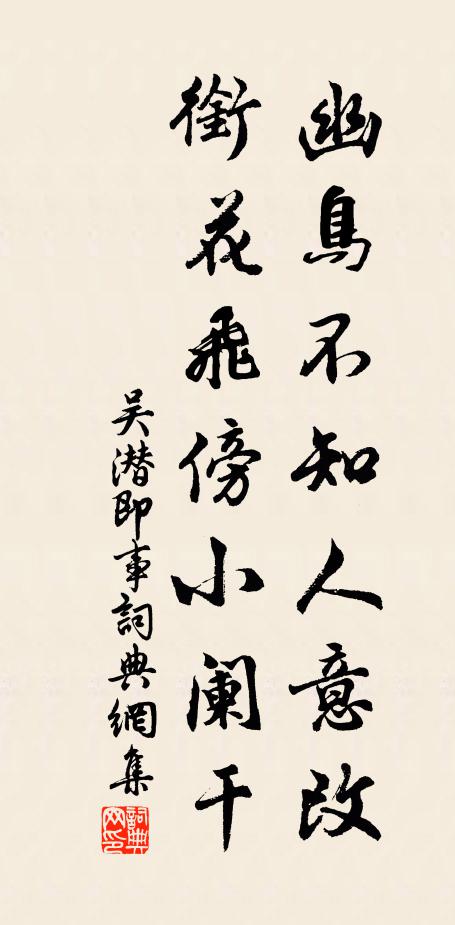 幽鳥不知人意改
銜花飛傍小阑干
吴潜即事詞典網集
詞典
网印